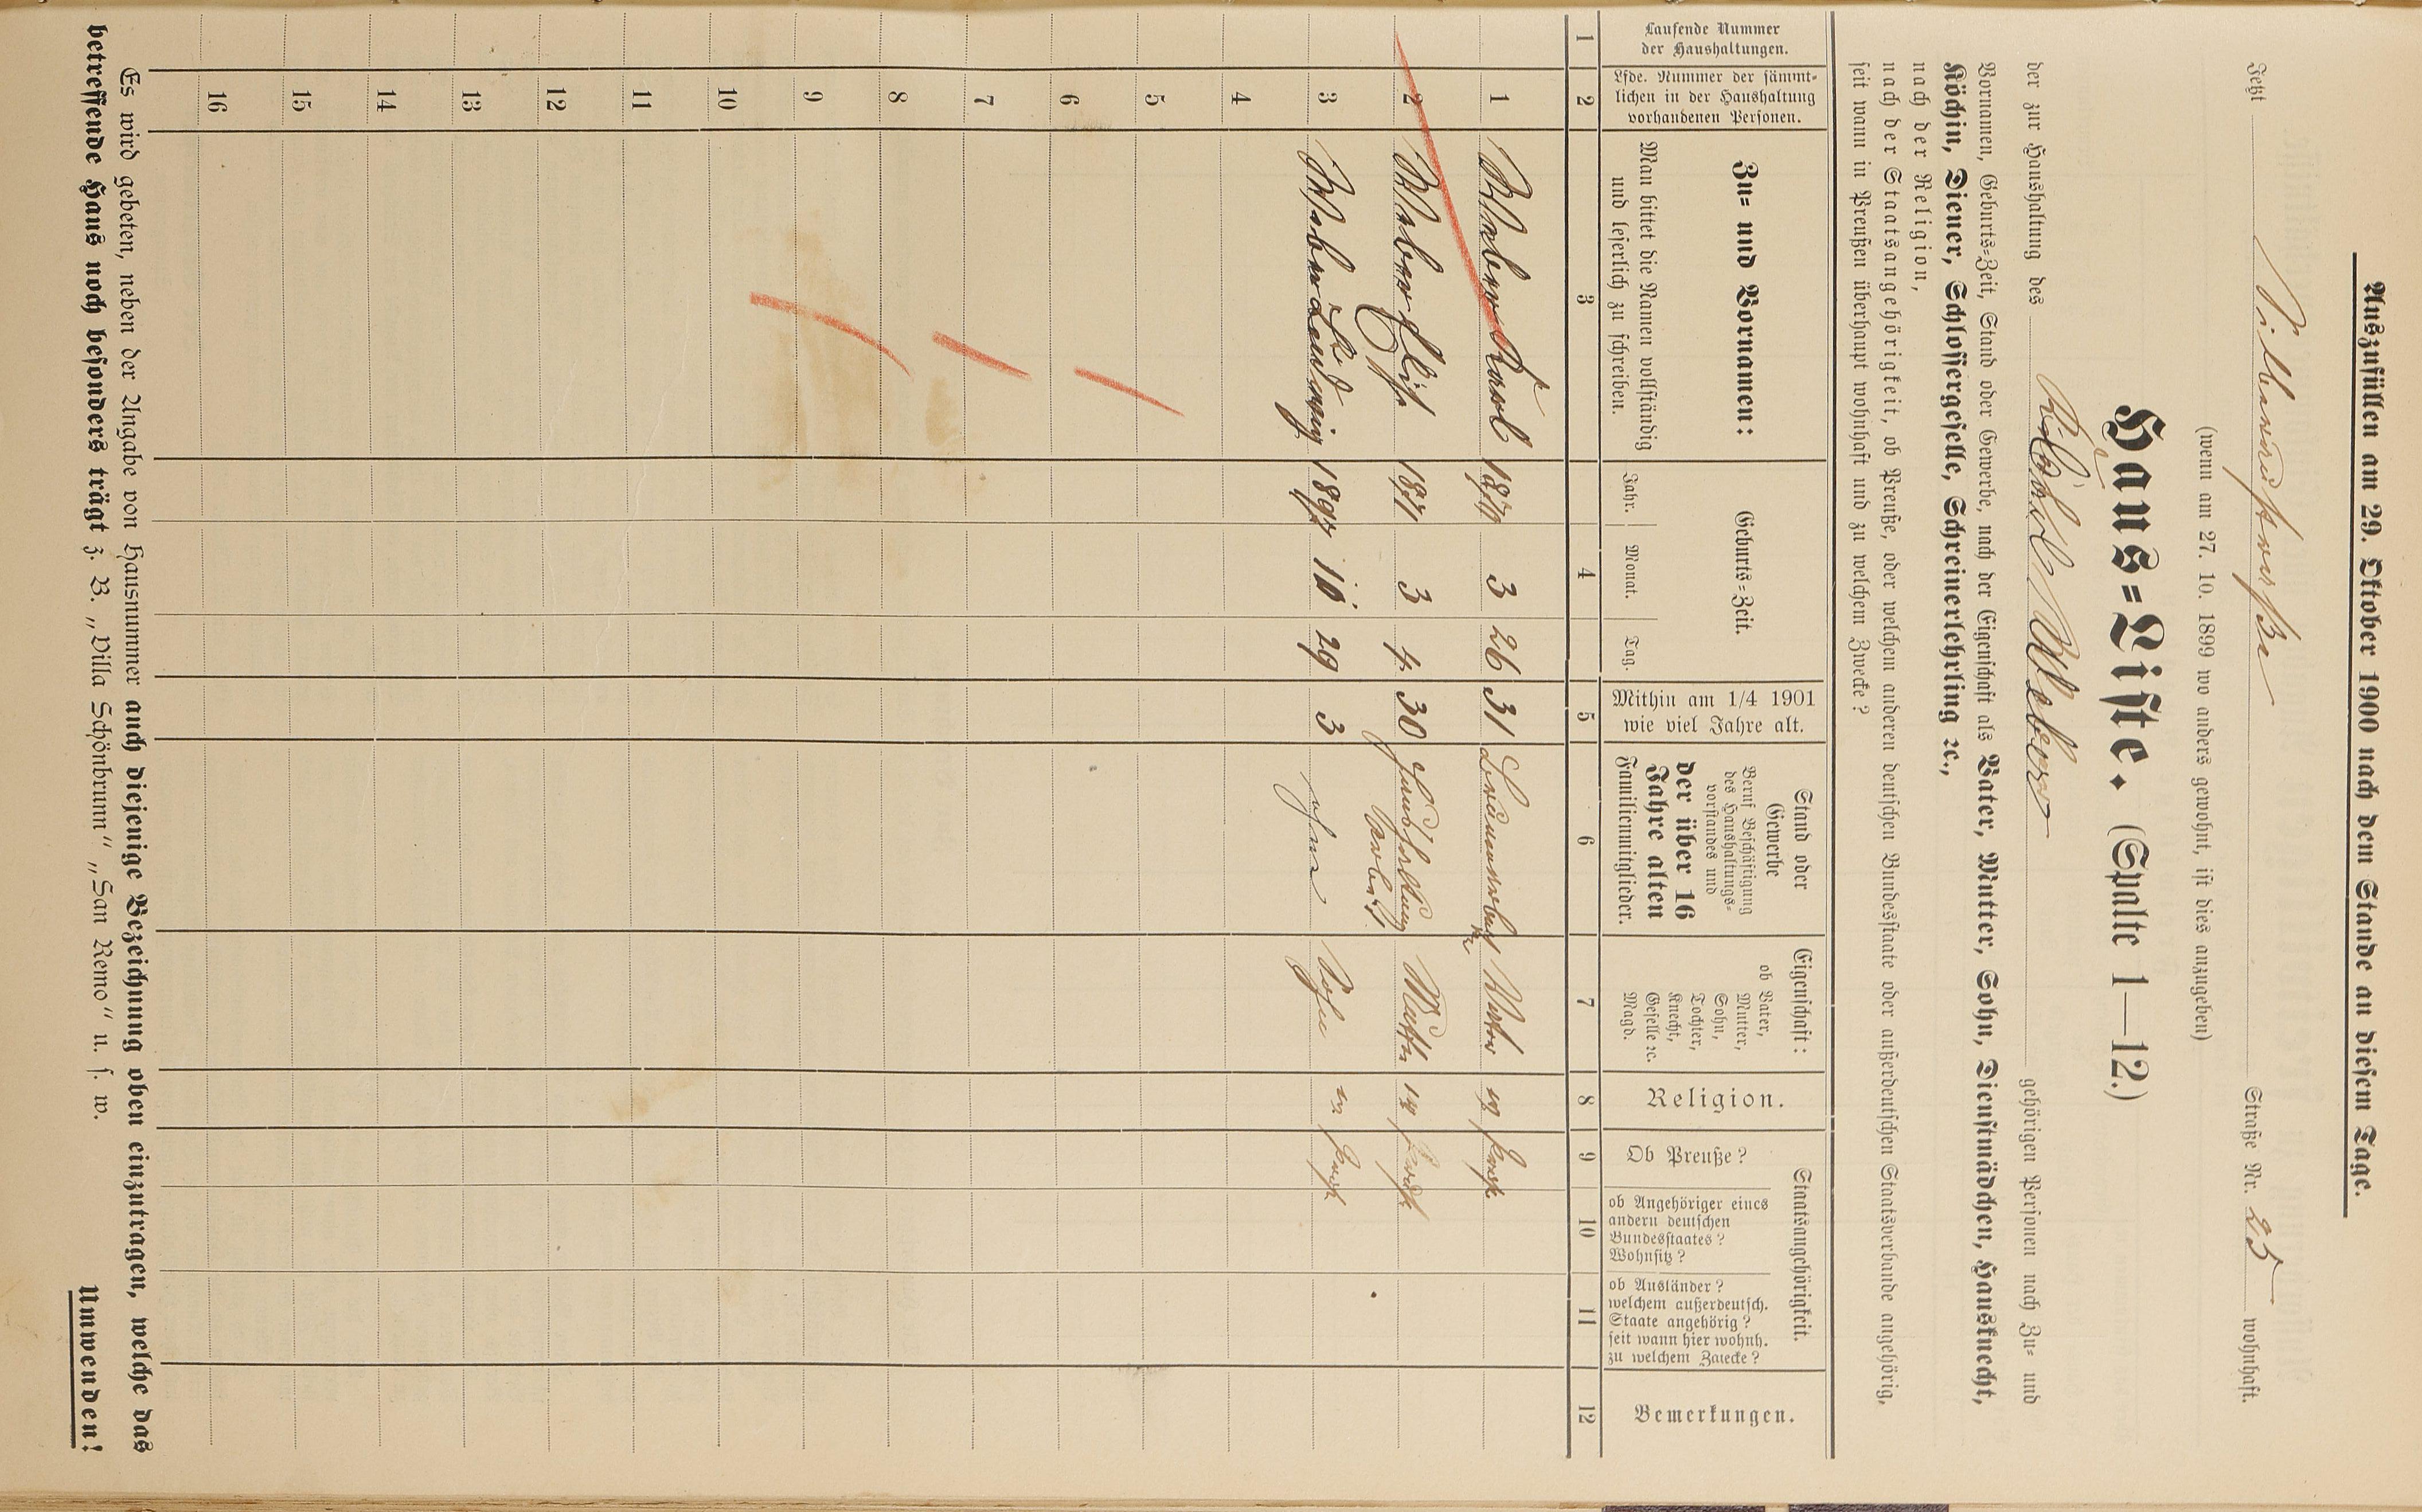 Auszufüllen am 29. Oktober 1900 nach dem Stande an diesem Tage.
Jetzt Straße Nr. 25 wohnhaft.
(wenn am 27. 10. 1899 wo anders gewohnt, ist dies anzugeben)
Haus=Liste. (Spalte 1—12.)
der zur Haushaltung des Weber gehörigen Personen nach Zu= und
Vornamen, Geburts=Zeit, Stand oder Gewerbe, nach der Eigenschaft als Vater, Mutter, Sohn, Dienstmädchen, Hausknecht,
Köchin, Diener, Schlossergeselle, Schreinerlehrling ꝛc.,
nach der Religion,
nach der Staatsangehörigkeit, ob Preuße, oder welchem anderen deutschen Bundesstaate oder außerdeutschen Staatsverbande angehörig,
seit wann in Preußen überhaupt wohnhaft und zu welchem Zwecke?
Laufende Nummer
der Haushaltungen.
Lfde. Nummer der sämmt=
lichen in der Haushaltung
vorhandenen Personen.
Zu= und Vornamen:
Man bittet die Namen vollständig
und leserlich zu schreiben.
Geburts=Zeit.
Jahr. Monat. Tag.
Mithin am 1/4 1901
wie viel Jahre alt.
Stand oder
Gewerbe
Beruf Beschäftigung
des Haushaltungs=
vorstandes und
der über 16
Jahre alten
Familienmitglieder.
Eigenschaft:
ob Vater,
Mutter,
Sohn,
Tochter,
Knecht,
Geselle ꝛc.
Magd.
Religion.
Staatsangehörigkeit.
Ob Preuße?
ob Angehöriger eines
andern deutschen
Bundesstaates?
Wohnsitz?
ob Ausländer?
welchem außerdeutsch.
Staate angehörig?
seit wann hier wohnh.
zu welchem Zwecke?
Bemerkungen.
1 2 3 4 5 6 7 8 9 10 11 12
1 Weber Karl 1870 3 26 31 Vater
2 Weber Elise 1871 3 4 30 Haushaltung Mutter
3 Weber Ludwig 1897 10 29 3 ohne Sohn
4
5
6
7
8
9
10
11
12
13
14
15
16
Es wird gebeten, neben der Angabe von Hausnummer auch diejenige Bezeichnung oben einzutragen, welche das
betreffende Haus noch besonders trägt z. B. „Villa Schönbrunn“ „San Remo“ u. s. w.
Umwenden!